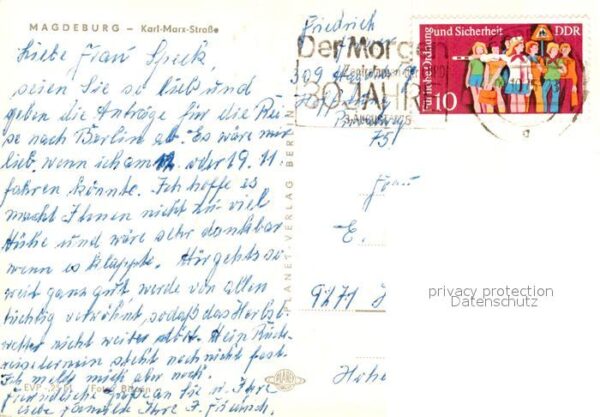 MAGDEBURG - Karl-Marx-Straße
Liebe Frau Speck,
seien Sie so lieb und
geben die Anträge für die Rei-
se nach Berlin ab. Es wäre mir
lieb, wenn ich am 12. oder 19. 11.
fahren könnte. Ich hoffe es
macht Ihnen nicht zu viel
Mühe und wäre sehr dankbar
wenn es klappte. Mir geht's so-
weit ganz gut, werde von allen
tüchtig verwöhnt, sodaß das Herbst-
wetter nicht weiter stört. Mein Rück-
reisetermin steht noch nicht fest.
Ich melde mich aber noch.
Freundliche Grüße an Sie u. Ihre
liebe Familie Ihre J. Freundl.
EVP
PLANET-VERLAG BERLIN
PLANET
Friedrich
309
75
Der Morgen
30 JAHRE
für liche Ordnung und Sicherheit
DDR
10
Frau
E.
9271
Hohe
privacy protection
Datenschutz